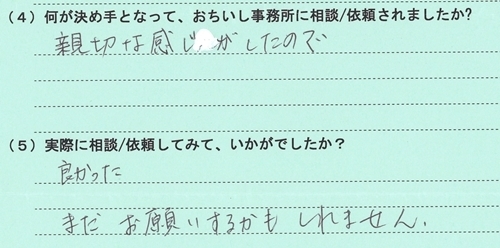 （4）何が決め手となって、おちいし事務所に相談/依頼されましたか?
親切な感じがしたので
（5）実際に相談/依頼してみて、いかがでしたか？
良かった
まだ お願いするかも しれません.